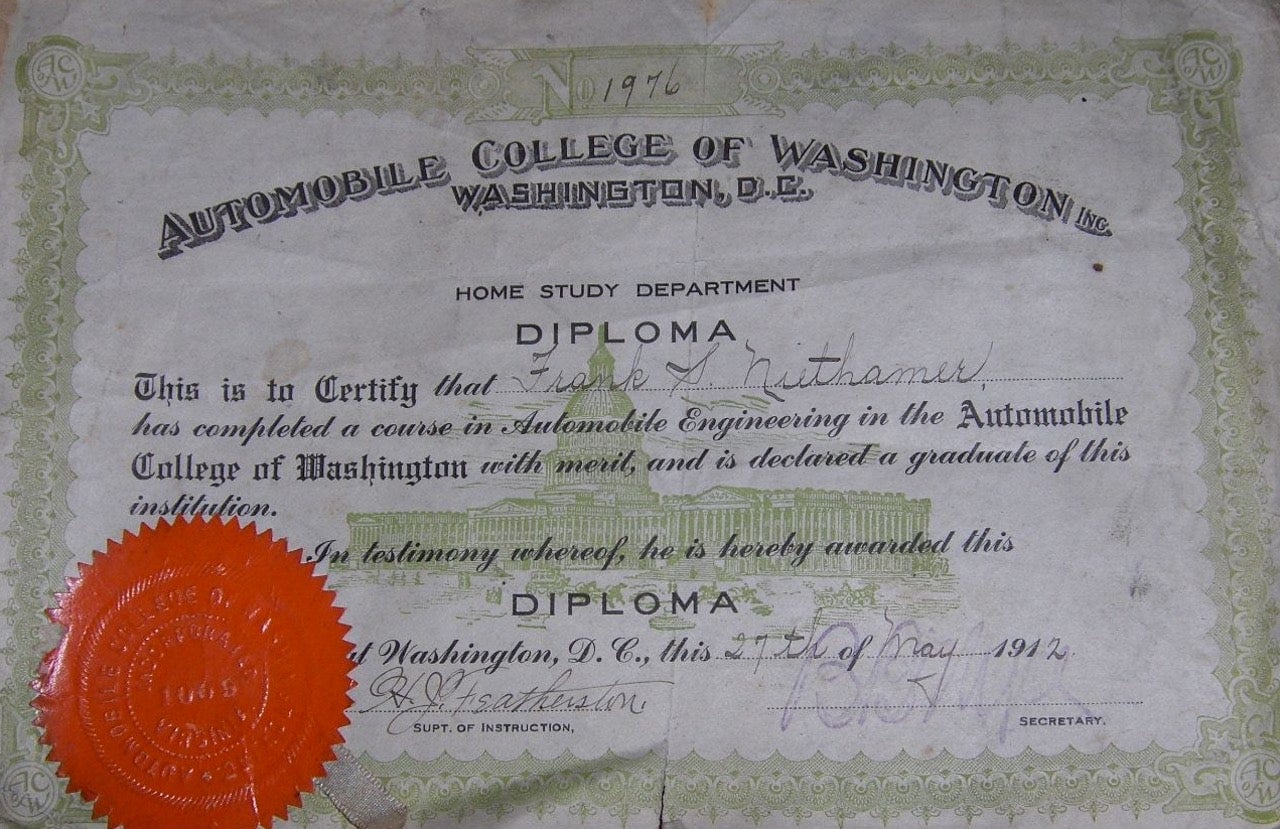 No 1976
AUTOMOBILE COLLEGE OF WASHINGTON INC.
WASHINGTON, D.C.
HOME STUDY DEPARTMENT
DIPLOMA
This is to Certify that Frank S. Niethamer,
has completed a course in Automobile Engineering in the Automobile
College of Washington with merit, and is declared a graduate of this
institution.
In testimony whereof, he is hereby awarded this
DIPLOMA
at Washington, D. C., this 27th of May 1912
H. J. Featherston.
SUPT. OF INSTRUCTION,
SECRETARY.
AUTOMOBILE COLLEGE OF
VIRGINIA
ACofW
ACofW
ACofW
ACofW